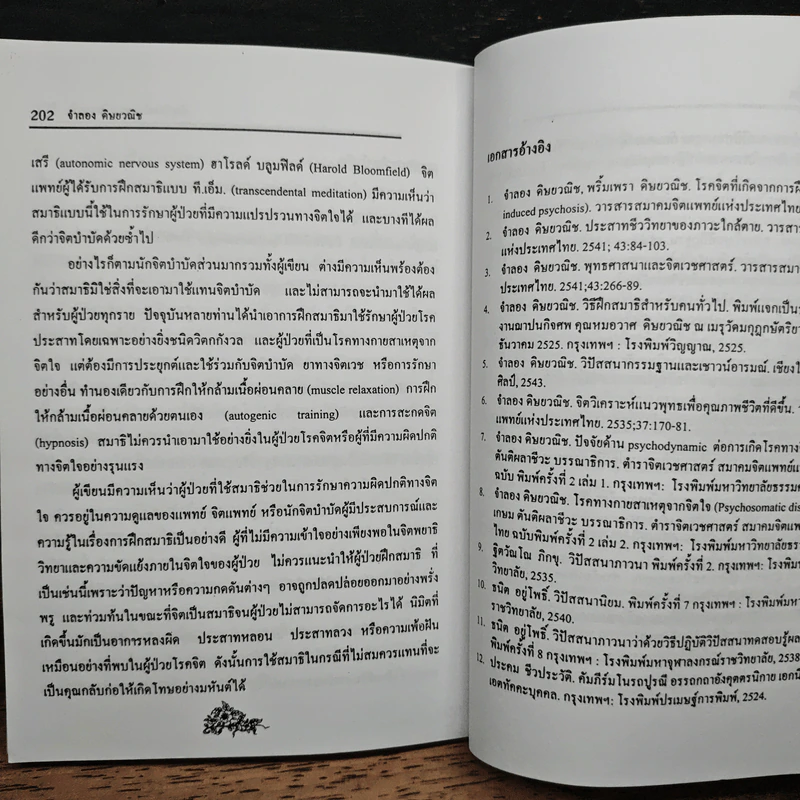 202 จำลอง ดิษยวณิช
เสรี (autonomic nervous system) ฮาโรลด์ บลูมฟิลด์ (Harold Bloomfield) จิต
แพทย์ผู้ได้รับการฝึกสมาธิแบบ ที.เอ็ม. (transcendental meditation) มีความเห็นว่า
สมาธิแบบนี้ใช้ในการรักษาผู้ป่วยที่มีความแปรปรวนทางจิตใจได้ และบางทีได้ผล
ดีกว่าจิตบำบัดด้วยซ้ำไป
อย่างไรก็ตามนักจิตบำบัดส่วนมากรวมทั้งผู้เขียน ต่างมีความเห็นพร้องต้อง
กันว่าสมาธิมิใช่สิ่งที่จะเอามาใช้แทนจิตบำบัด และไม่สามารถจะนำมาใช้ได้ผล
สำหรับผู้ป่วยทุกราย ปัจจุบันหลายท่านได้นำเอาการฝึกสมาธิมาใช้รักษาผู้ป่วยโรค
ประสาทโดยเฉพาะอย่างยิ่งชนิดวิตกกังวล และผู้ป่วยที่เป็นโรคทางกายสาเหตุจาก
จิตใจ แต่ต้องมีการประยุกต์และใช้ร่วมกับจิตบำบัด ยาทางจิตเวช หรือการรักษา
อย่างอื่น ทำนองเดียวกับการฝึกให้กล้ามเนื้อผ่อนคลาย (muscle relaxation) การฝึก
ให้กล้ามเนื้อผ่อนคลายด้วยตนเอง (autogenic training) และการสะกดจิต
(hypnosis) สมาธิไม่ควรนำเอามาใช้อย่างยิ่งในผู้ป่วยโรคจิตหรือผู้ที่มีความผิดปกติ
ทางจิตใจอย่างรุนแรง
ผู้เขียนมีความเห็นว่าผู้ป่วยที่ใช้สมาธิช่วยในการรักษาความผิดปกติทางจิต
ใจ ควรอยู่ในความดูแลของแพทย์ จิตแพทย์ หรือนักจิตบำบัดผู้มีประสบการณ์และ
ความรู้ในเรื่องการฝึกสมาธิเป็นอย่างดี ผู้ที่ไม่มีความเข้าใจอย่างเพียงพอในจิตพยาธิ
วิทยาและความขัดแย้งภายในจิตใจของผู้ป่วย ไม่ควรแนะนำให้ผู้ป่วยฝึกสมาธิ ที่
เป็นเช่นนี้เพราะว่าปัญหาหรือความกดดันต่างๆ อาจถูกปลดปล่อยออกมาอย่างพรั่ง
พรู และท่วมท้นในขณะที่จิตเป็นสมาธิจนผู้ป่วยไม่สามารถจัดการอะไรได้ นิมิตที่
เกิดขึ้นมักเป็นอาการหลงผิด ประสาทหลอน ประสาทลวง หรือความเพ้อฝัน
เหมือนอย่างที่พบในผู้ป่วยโรคจิต ดังนั้นการใช้สมาธิในกรณีที่ไม่สมควรแทนที่จะ
เป็นคุณกลับก่อให้เกิดโทษอย่างมหันต์ได้
เอกสารอ้างอิง
1. จำลอง ดิษยวณิช, พริ้มเพรา ดิษยวณิช. โรคจิตที่เกิดจากการฝึ
induced psychosis). วารสารสมาคมจิตแพทย์แห่งประเทศไทย
2. จำลอง ดิษยวณิช. ประสาทชีววิทยาของภาวะใกล้ตาย. วารสาร
แห่งประเทศไทย. 2541; 43:84-103.
3. จำลอง ดิษยวณิช. พุทธศาสนาและจิตเวชศาสตร์. วารสารสมา
ประเทศไทย. 2541;43:266-89.
4. จำลอง ดิษยวณิช. วิธีฝึกสมาธิสำหรับคนทั่วไป. พิมพ์แจกเป็น
งานฌาปนกิจศพ คุณหมอวาศ ดิษยวณิช ณ เมรุวัดมกุฎกษัตริยา
ธันวาคม 2525. กรุงเทพฯ : โรงพิมพ์วิญญาณ, 2525.
5. จำลอง ดิษยวณิช. วิปัสสนากรรมฐานและเชาวน์อารมณ์. เชียงใ
ศิลป์, 2543.
6. จำลอง ดิษยวณิช. จิตวิเคราะห์แนวพุทธเพื่อคุณภาพชีวิตที่ดีขึ้น.
แพทย์แห่งประเทศไทย. 2535;37:170-81.
7. จำลอง ดิษยวณิช. ปัจจัยด้าน psychodynamic ต่อการเกิดโรคทาง
ตันติผลาชีวะ บรรณาธิการ. ตำราจิตเวชศาสตร์ สมาคมจิตแพทย์แ
ฉบับ พิมพ์ครั้งที่ 2 เล่ม 1. กรุงเทพฯ: โรงพิมพ์มหาวิทยาลัยธรรมศ
8. จำลอง ดิษยวณิช. โรคทางกายสาเหตุจากจิตใจ (Psychosomatic dis
เกษม ตันติผลาชีวะ บรรณาธิการ. ตำราจิตเวชศาสตร์ สมาคมจิตแพ
ไทย ฉบับพิมพ์ครั้งที่ 2 เล่ม 2. กรุงเทพฯ: โรงพิมพ์มหาวิทยาลัยธรร
9. ฐิตวัณโณ ภิกขุ. วิปัสสนาภาวนา พิมพ์ครั้งที่ 2. กรุงเทพฯ: โรงพิมพ์มหา
วิทยาลัย, 2535.
10. ธนิต อยู่โพธิ์. วิปัสสนานิยม. พิมพ์ครั้งที่ 7 กรุงเทพฯ : โรงพิมพ์มหา
ราชวิทยาลัย, 2540.
11. ธนิต อยู่โพธิ์. วิปัสสนาภาวนาว่าด้วยวิธีปฏิบัติวิปัสสนาทดสอบรู้ผล
พิมพ์ครั้งที่ 8 กรุงเทพฯ : โรงพิมพ์มหาจุฬาลงกรณ์ราชวิทยาลัย, 2538
12. ประคม ชีวประวัติ. คัมภีร์มโนรถปูรณี อรรถกถาอังคุตตรนิกาย เอกนิ
เอตทัคคะบุคคล. กรุงเทพฯ: โรงพิมพ์ปรเมษฐ์การพิมพ์, 2524.